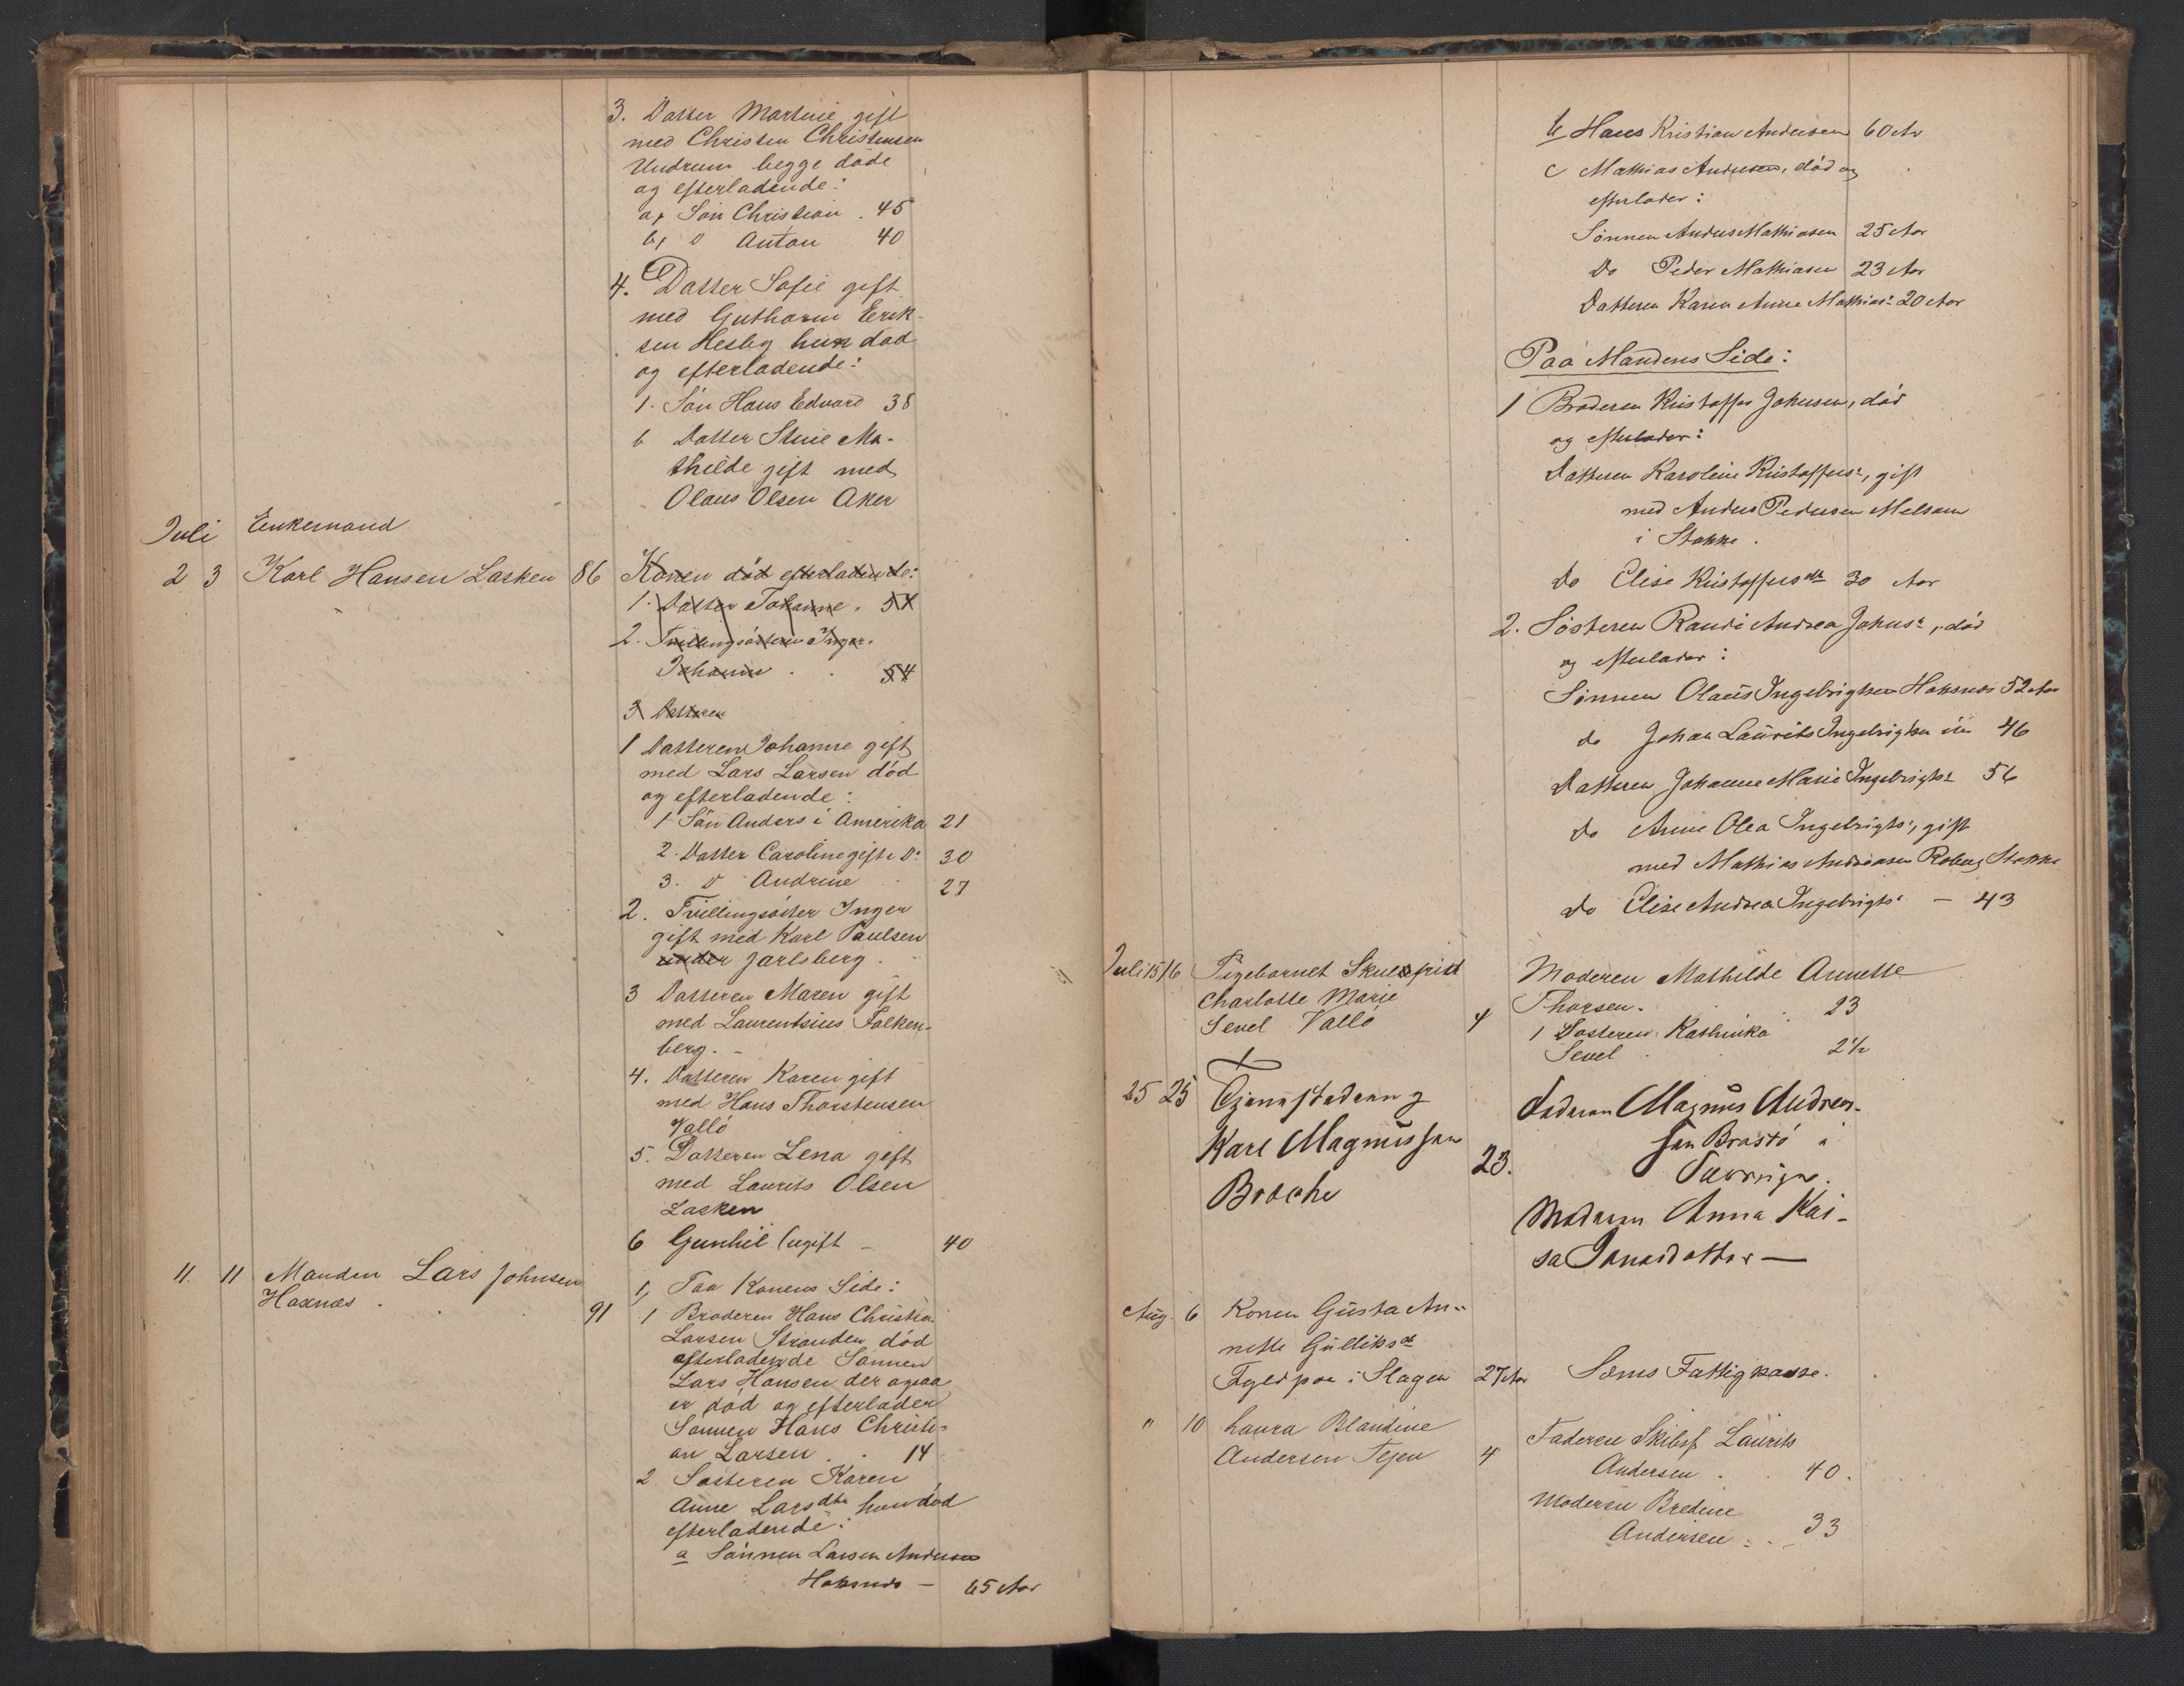 3. Datter Martine gift
med Christen Christensen
Undrum begge døde
og efterladende:
a, Søn Christian . 45
b, D Anton 40
4. Datter Sofie gift
med Guthorm Erik-
sen Hesby hun død
og efterladende:
1. Søn Hans Edvard 38
b Datter Stine Ma-
thilde gift med
Olaus Olsen Aker
Juli Enkemand
2 3 Karl Hansen Lasken 86 Konen død efterladende:
1. Datter Johanne . 54
2. Tvillingsösteren Inger.
Johanne . . 54
3 Datteren
1 Datteren Johanne gift
med Lars Larsen död
og efterladende:
1 Sön Anders i Amerika 21
2. Datter Caroline gift i Do 30
3. D Andrine . 27
2. Tvillingsöster Inger
gift med Karl Paulsen
under Jarlsberg .
3 Datteren Maren gift
med Laurentsius Falken-
berg. -
4. Datteren Karen gift
med Hans Thorstensen
Vallö
5. Datteren Lena gift
med Laurits Olsen
Lasken
6 Gunhil (ugift - 40
11. 11 Manden Lars Johnsen
Haxnæs . . 91
1, Paa Konens Side:
1 Broderen Hans Christian
Larsen Stranden død
efterladende Sønnen
Lars Hansen der ogsaa
er død og efterlader
Sønnen Hans Christi-
an Larsen . . 14
2 Søsteren Karen
Anne Larsdtr hun död
efterladende:
a Sönnen Larsen Andersen
Haksnæs - 65 Aar
b Hans Kristian Andersen 60 Ar
c Mathias Andersen, död og
efterlader:
Sönnen Anders Mathiasen 25 Aar
Do Peder Mathiasen 23 Aar
Datteren Karen Anne Mathias: 20 Aar
Paa Mandens Side:
1 Broderen Kristoffer Johnsen, död
og efterlader:
Datteren Karoline Kristoffers:, gift
med Anders Pedersen Melsom
i Stokke .
Do Elise Kristoffersdtr 30 Aar
2. Sösteren Randi Andrea Johns:, död
og efterlader:
Sönnen Olaus Ingebrigtsen Haksnes 52 Aar
do Johan Laurits Ingebrigtsen 46
Datteren Johanne Marie Ingebrigts: 56
do Anne Olea Ingebrigts:, gift
med Mathias Andreasen Roberg Stokke
do Elise Andrea Ingebrigts: - 43
Juli 15 16 Pigebarnet Skuefrid
Charlotte Marie
Sevel Vallö 4
Moderen Mathilde Annette
Thorsen. . . 23
1 Søsteren Kathinka
Sevel . 2½
25 25 Tjenestedreng
Karl Magnussen
Broche 23.
Faderen Magnus Andrea-
sen Brastö i
Sverrige.
Moderen Anna Kai-
sa Jonasdotter —
Aug. 6 Konen Gusta An-
nette Gulliksdtr
Fyldpaa i Slagen 27 Aar Sems Fattigkasse.
" 10 Laura Blandine
Andersen Tejen 4
Faderen Skibsf Laurits
Andersen . . 40.
Moderen Bredine
Andersen . . 33